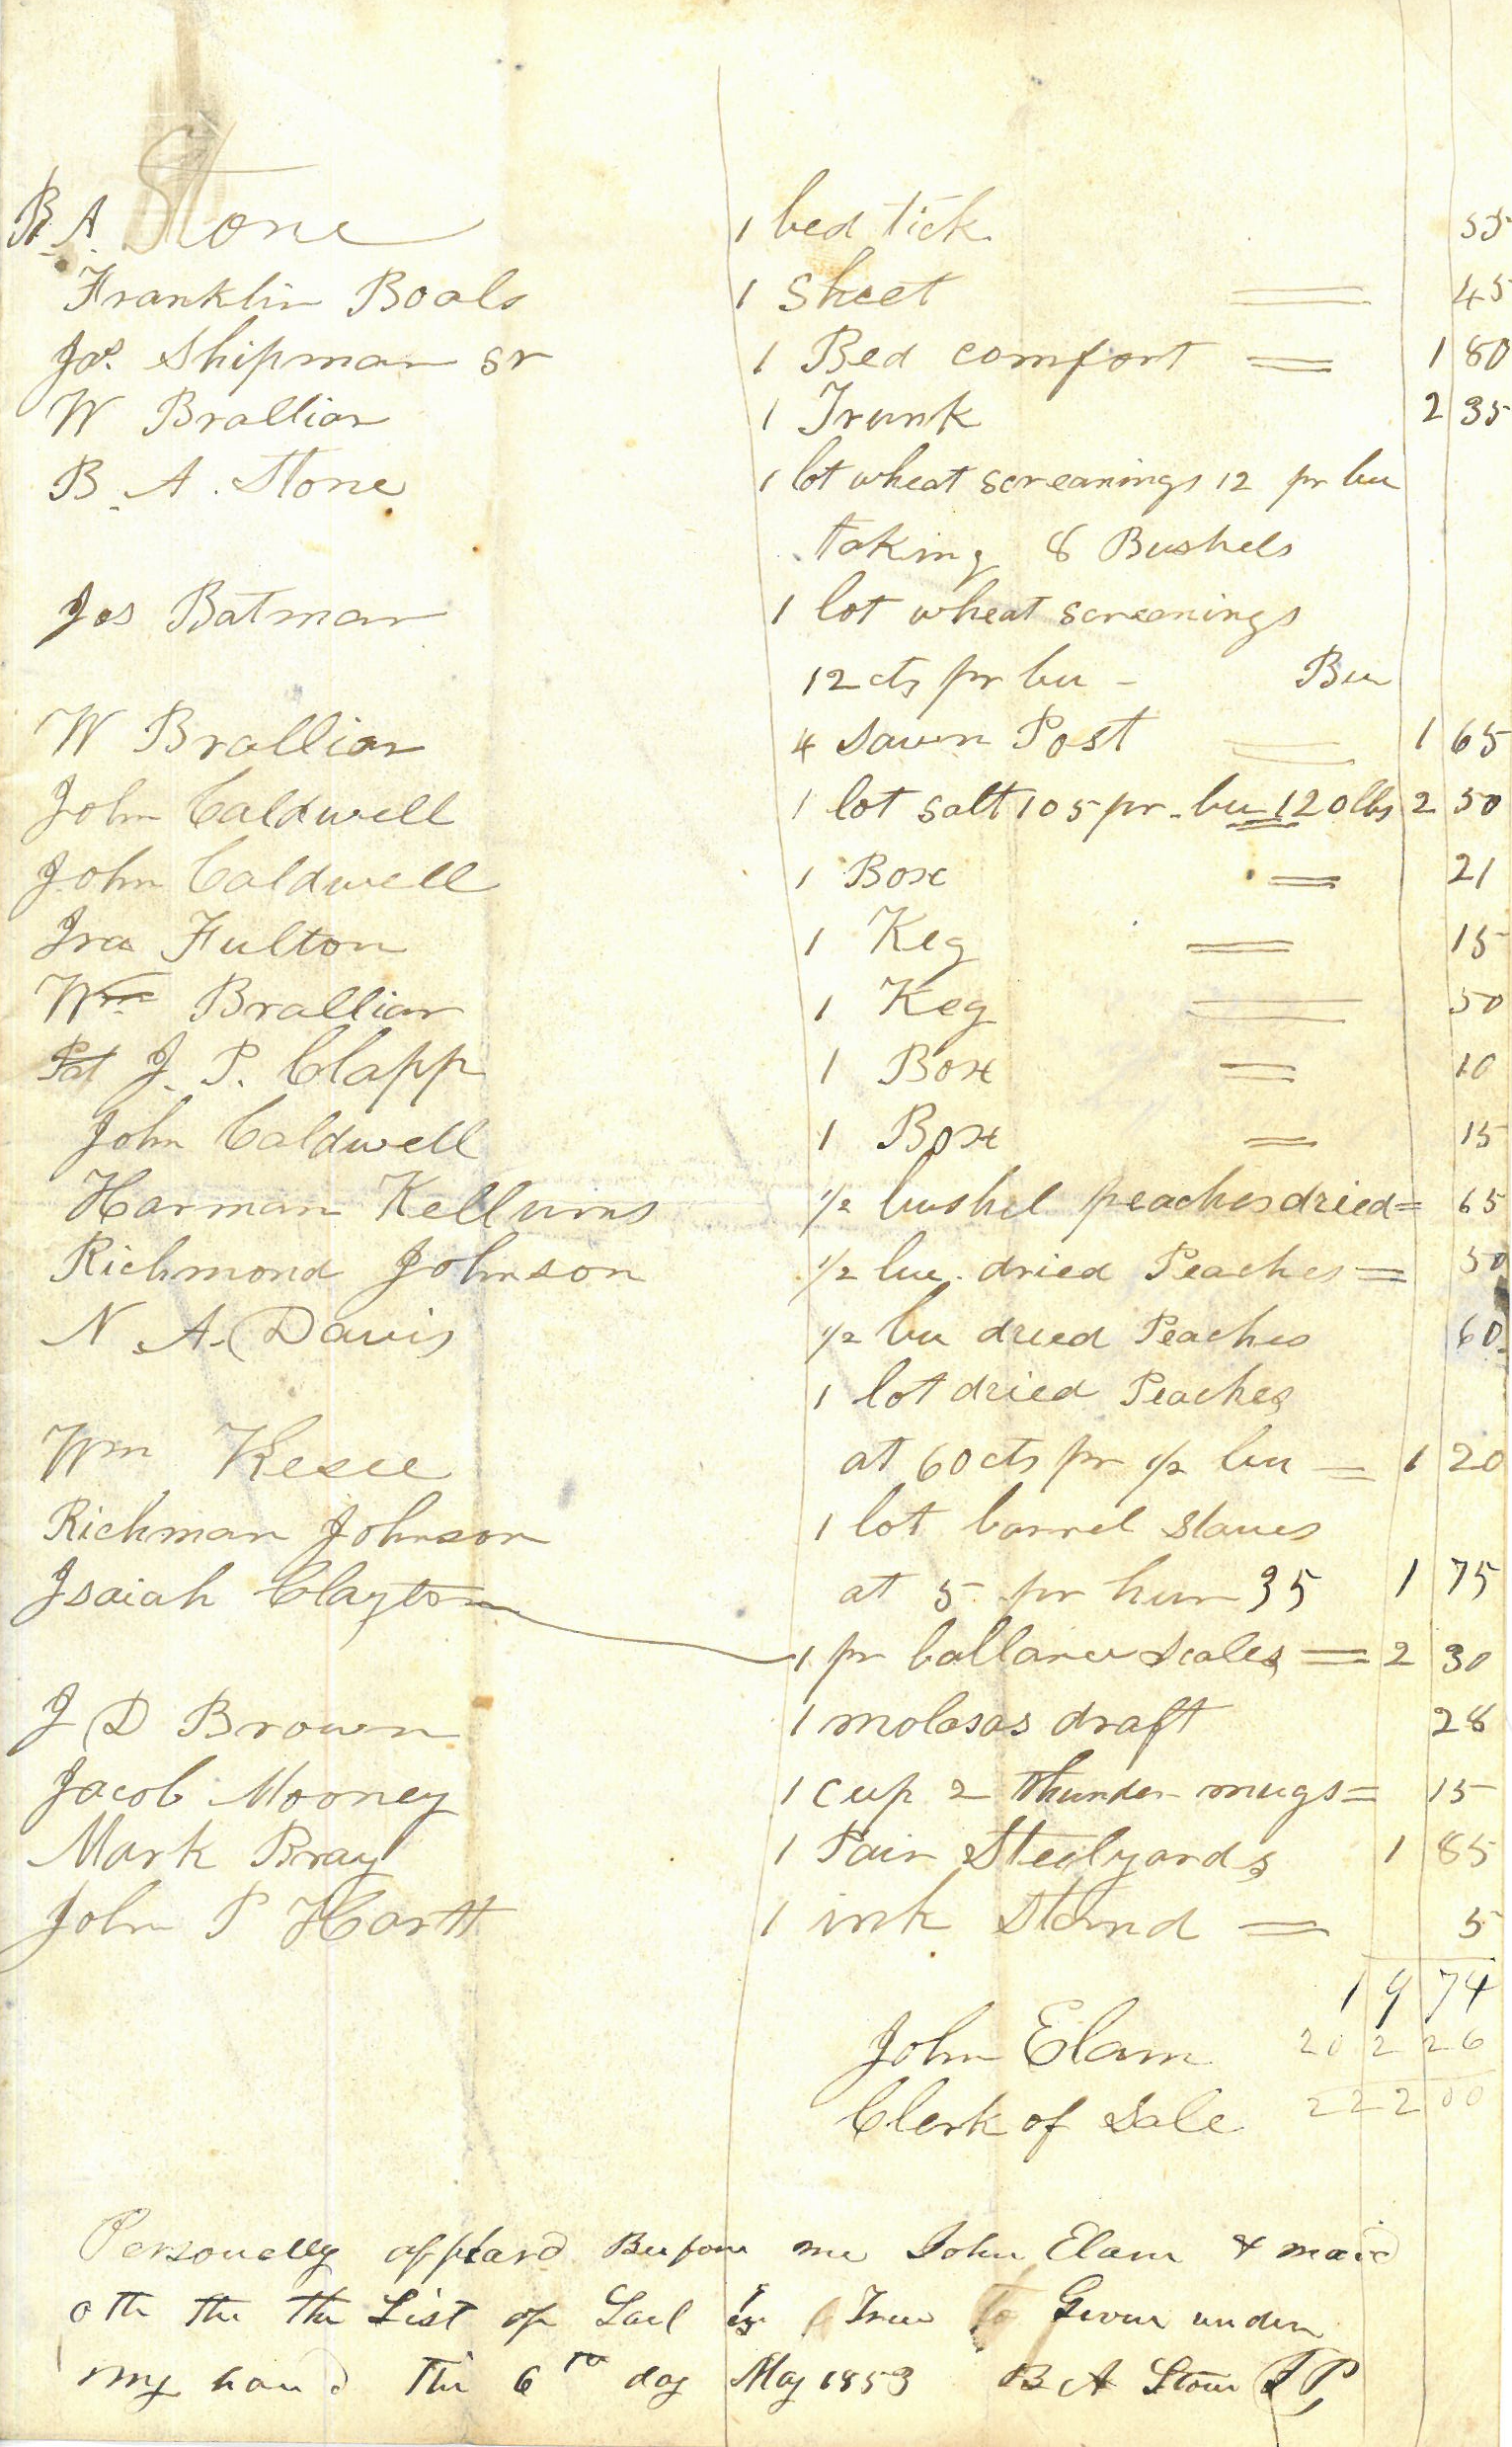 B. A. Stone 1 bed tick 55
Franklin Boals 1 Sheet = 45
Jos. Shipman sr 1 Bed comfort = 1 80
W Brallier 1 Trunk 2 35
B. A. Stone 1 lot wheat screanings 12 pr bu
taking 8 Bushels
Jos Batman 1 lot wheat screanings
12 cts pr bu - Bu
W Brallier 4 Sawn Post = 1 65
John Caldwell 1 lot salt 105 pr bu 120 lbs 2 50
John Caldwell 1 Box = 21
Ira Fulton 1 Keg = 15
Wm Brallier 1 Keg = 50
Pat J. P. Clapp 1 Box = 10
John Caldwell 1 Box = 15
Harman Kellums 1/2 bushel peaches dried = 65
Richmond Johnson 1/2 bu. dried Peaches = 50
N. A. Davis 1/2 bu dried Peaches 60
1 lot dried Peaches
Wm Kesee at 60 cts pr 1/2 bu = 1 20
Richman Johnson 1 lot barrel staves
Isaiah Clayton at 5 pr hun 35 1 75
1 pr ballance Scales = 2 30
J D Brown 1 molasas draft 28
Jacob Mooney 1 cup 2 thunder mugs = 15
Mark Bray 1 Pair Steelyards 1 85
John P Hartt 1 ink Stand = 5
19 74
John Elam 202 26
Clerk of Sale 222 00
Personelly appeard Beefore me John Elam & maid
oth the the List of Sail is True to Given under
my hand thi 6th day May 1853 B A Stone J P